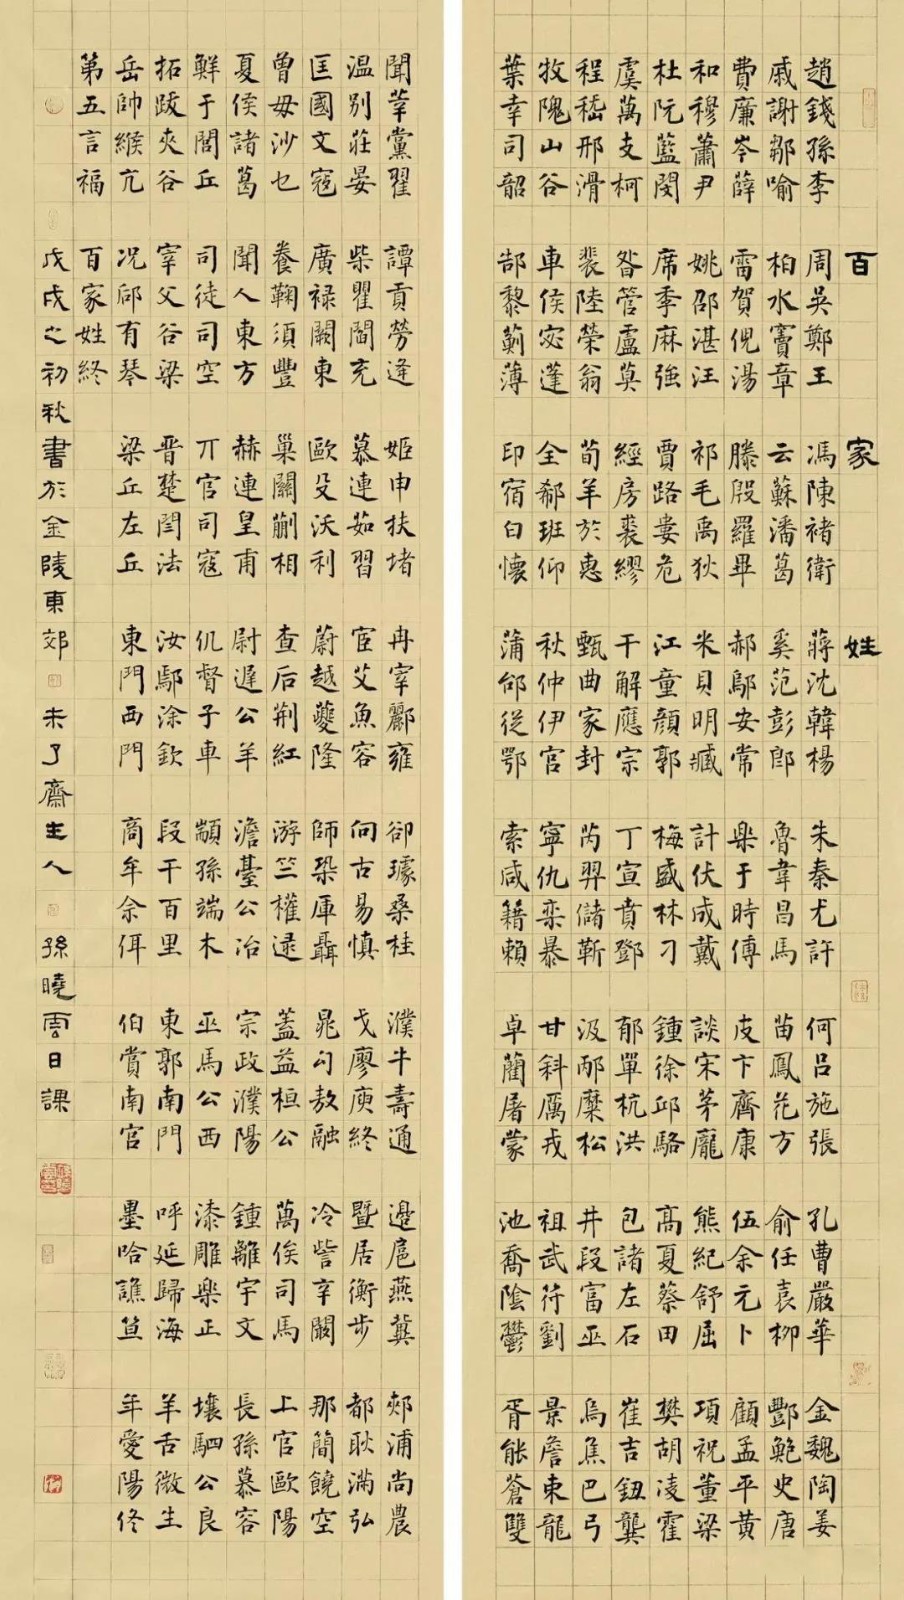 百家姓
趙錢孫李 周吳鄭王 馮陳褚衛 蔣沈韓楊 朱秦尤許 何呂施張 孔曹嚴華 金魏陶姜
戚謝鄒喻 柏水竇章 云蘇潘葛 奚范彭郎 魯韋昌馬 苗鳳花方 俞任袁柳 酆鮑史唐
費廉岑薛 雷賀倪湯 滕殷羅畢 郝鄔安常 樂于時傅 皮卞齊康 伍余元卜 顧孟平黃
和穆蕭尹 姚邵湛汪 祁毛禹狄 米貝明臧 計伏成戴 談宋茅龐 熊紀舒屈 項祝董梁
杜阮藍閔 席季麻強 賈路婁危 江童顏郭 梅盛林刁 鍾徐邱駱 高夏蔡田 樊胡凌霍
虞萬支柯 昝管盧莫 經房裘繆 干解應宗 丁宣賁鄧 郁單杭洪 包諸左石 崔吉鈕龔
程嵇邢滑 裴陸榮翁 荀羊於惠 甄曲家封 芮羿儲靳 汲邴糜松 井段富巫 烏焦巴弓
牧隗山谷 車侯宓蓬 全郗班仰 秋仲伊宮 寧仇欒暴 甘斜厲戎 祖武符劉 景詹束龍
葉幸司韶 郜黎薊薄 印宿白懷 蒲邰從鄂 索咸籍賴 卓藺屠蒙 池喬陰鬱 胥能蒼雙
聞莘黨翟 譚貢勞逄 姬申扶堵 冉宰酈雍 郤璩桑桂 濮牛壽通 邊扈燕冀 郟浦尚農
温別莊晏 柴瞿閻充 慕連茹習 宦艾魚容 向古易慎 戈廖庾終 暨居衡步 都耿滿弘
匡國文寇 廣禄闕東 歐殳沃利 蔚越夔隆 師鞏厙聶 晁勾敖融 冷訾辛闞 那簡饒空
曾毋沙乜 養鞠須豐 巢關蒯相 查后荊紅 游竺權逯 蓋益桓公 萬俟司馬 上官歐陽
夏侯諸葛 聞人東方 赫連皇甫 尉遲公羊 澹臺公冶 宗政濮陽 鍾離宇文 長孫慕容
鮮于閭丘 司徒司空 亓官司寇 仉督子車 顓孫端木 巫馬公西 漆雕樂正 壤駟公良
拓跋夾谷 宰父谷梁 晉楚閆法 汝鄢涂欽 段干百里 東郭南門 呼延歸海 羊舌微生
岳帥緱亢 况郈有琴 梁丘左丘 東門西門 商牟佘佴 伯賞南宮 墨哈譙笪 年愛陽佟
第五言福 百家姓終
戊戌之初秋書於金陵東郊 未了齋主人 孫曉雲日課